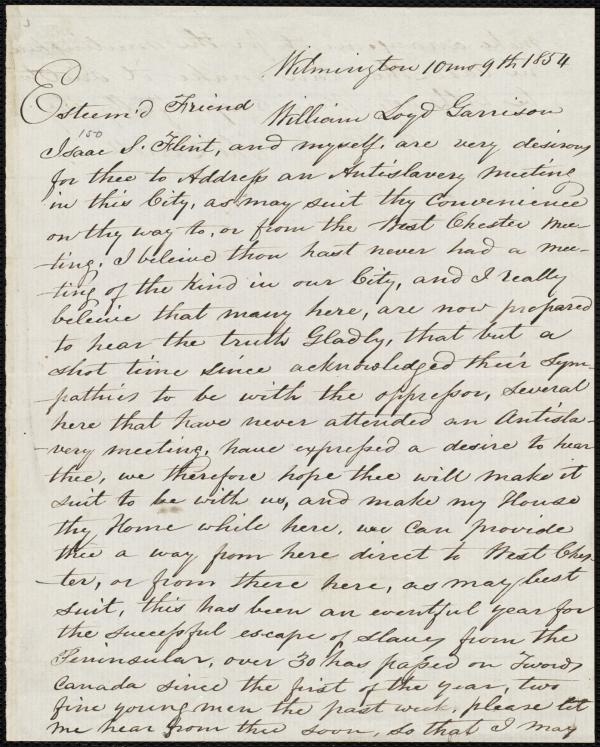 Wilmington 10 mo 9th 1854
Esteem'd Friend
William Loyd Garrison
150
Isaac S. Flint, and myself are very desirous
for thee to Address an Antislavery meeting
in this City, as may suit thy Convenience
on thy way to, or from the West Chester Mee-
ting; I beleive thou hast never had a mee-
ting of the kind in our City, and I really
beleive that many here, are now prepared
to hear the truth Gladly, that but a
shot time since acknowledged their Sym-
pathies to be with the oppressor, Several
here that have never attended an Antisla-
very meeting, have expressed a desire to hear
thee, we therefore hope thee will make it
suit to be with us, and make my House
thy Home while here, we can provide
thee a way from here direct to West Ches-
ter, or from there here, as may best
suit, this has been an eventful year for
the successful escape of slaves from the
Peninsular, over 30 has passed on Twords
Canada since the first of the year, two
fine young men the past week, please let
me hear from thee soon, so that I may